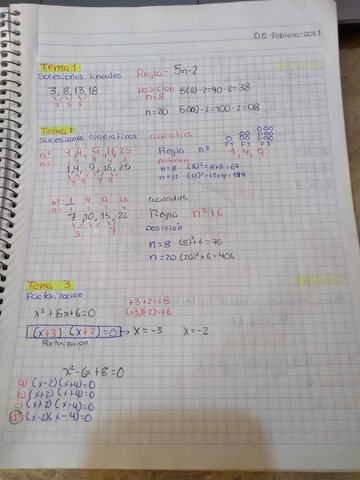 05-Febrero-2021
Tema 1
Sucesiones lineales Regla- 5n-2
3, 8, 13, 18 posicion 5(8)-2=40-2=38
5 5 5 n=8
n=20 5(20)-2=100-2=98
Tema 2
Sucesiones cuadraticas cuadratica
F1 F2 F3
n²= 1, 4, 9, 16, 25 Regla n² 1, 4, 9
n= 1 2 3 4 5 posicion
1, 4, 9, 16, 25 n=8 (8)²=8x8=64
3 5 7 9 n=12 (12)²=12x12=144
n²- 1 4 9 16 cuadratica
n- 1 2 3 4
7, 10, 15, 22 Regla n²+6
3 5 7 posicion
n=8 (8)²+6=70
n=20 (20)²+6=406
Tema 3
Factorizacion +3+2=+5
x²+5x+6=0 (+3)(+2)=+6
(x+3) (x+2)=0 → x=-3 x=-2
Factorizacion
x²-6x+8=0
a) (x-2)(x+4)=0
b) (x+2)(x+4)=0
c) (x+2)(x-4)=0
D) (x-2)(x-4)=0